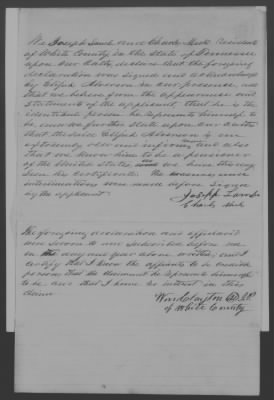 We Joseph Lamb and Charly Mick Residents
of White County in the State of Tennessee
upon our oaths declare that the foregoing
declaration was signed and acknowledged
by Elijah in our presence and
that we believe from the appearance and
statements of the applicant, that he is the
identical person he represents himself to
be and we further State upon our oaths
that the said Elijah is an
extremely old and infirm man and also
that we know him to be a pensioner
of the United States and we have this day
Seen his certificate. The
interlineations were made before Signed
by the applicant
Joseph Lamb
Charly Mick
The foregoing declaration and affidavit
was sworn to and subscribed before me
on the day and year above written, and I
certify that I know the affiants to be credible
persons, that the claimant he represents himself
to be, and that I have no interest in this
claim
Wm Clayton J.P.
of White County